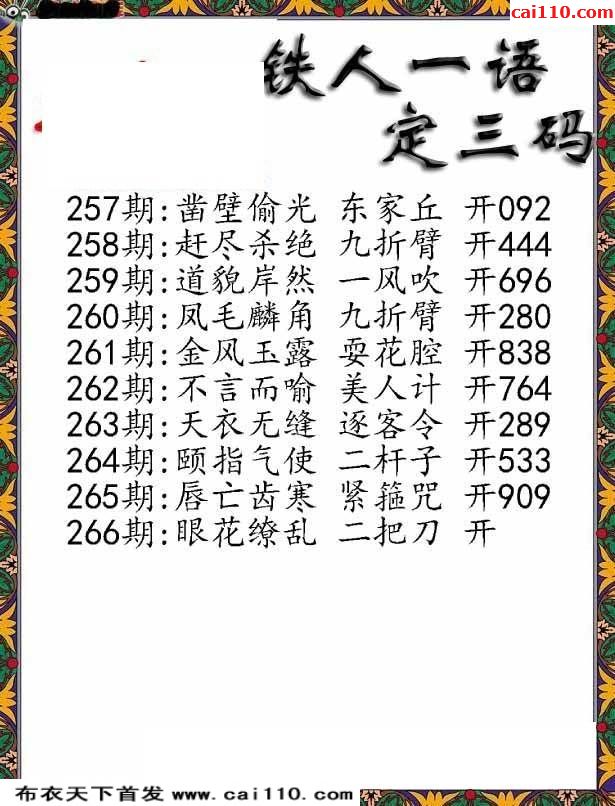 cai110.com
铁人一语
定三码
257期:凿壁偷光 东家丘 开092
258期:赶尽杀绝 九折臂 开444
259期:道貌岸然 一风吹 开696
260期:凤毛麟角 九折臂 开280
261期:金风玉露 耍花腔 开838
262期:不言而喻 美人计 开764
263期:天衣无缝 逐客令 开289
264期:颐指气使 二杆子 开533
265期:唇亡齿寒 紧箍咒 开909
266期:眼花缭乱 二把刀 开
布衣天下首发 www.cai110.com